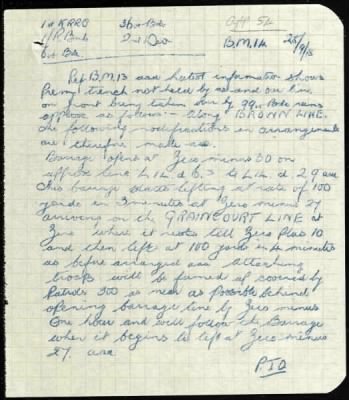 1st KRRC 36th Bde App 54
1st R. Berks 2nd Div
6th Bde B.M.14 25/9/18
Ref B.M.13 aaa latest information shows
Premy trench not held by us and our line
on front being taken over by 99th Bde runs
approx as follows :- along BROWN LINE.
The following modifications in arrangements
are therefore made aaa
Barrage opens at Zero minus 30 on
approx line L 1 d to L 1 d 2 9 aaa
This barrage starts lifting at rate of 100
yards in 3 minutes at Zero minus 27
arriving on the GRAINCOURT LINE at
Zero where it rests till Zero plus 10
and then lifts at 100 yards in 4 minutes
as before arranged aaa Attacking
troops will be formed up covered by
Patrols 300 as near as possible behind
opening barrage line by Zero minus
One hour and will follow the Barrage
when it begins to lift at Zero minus
27. aaa
P.T.O